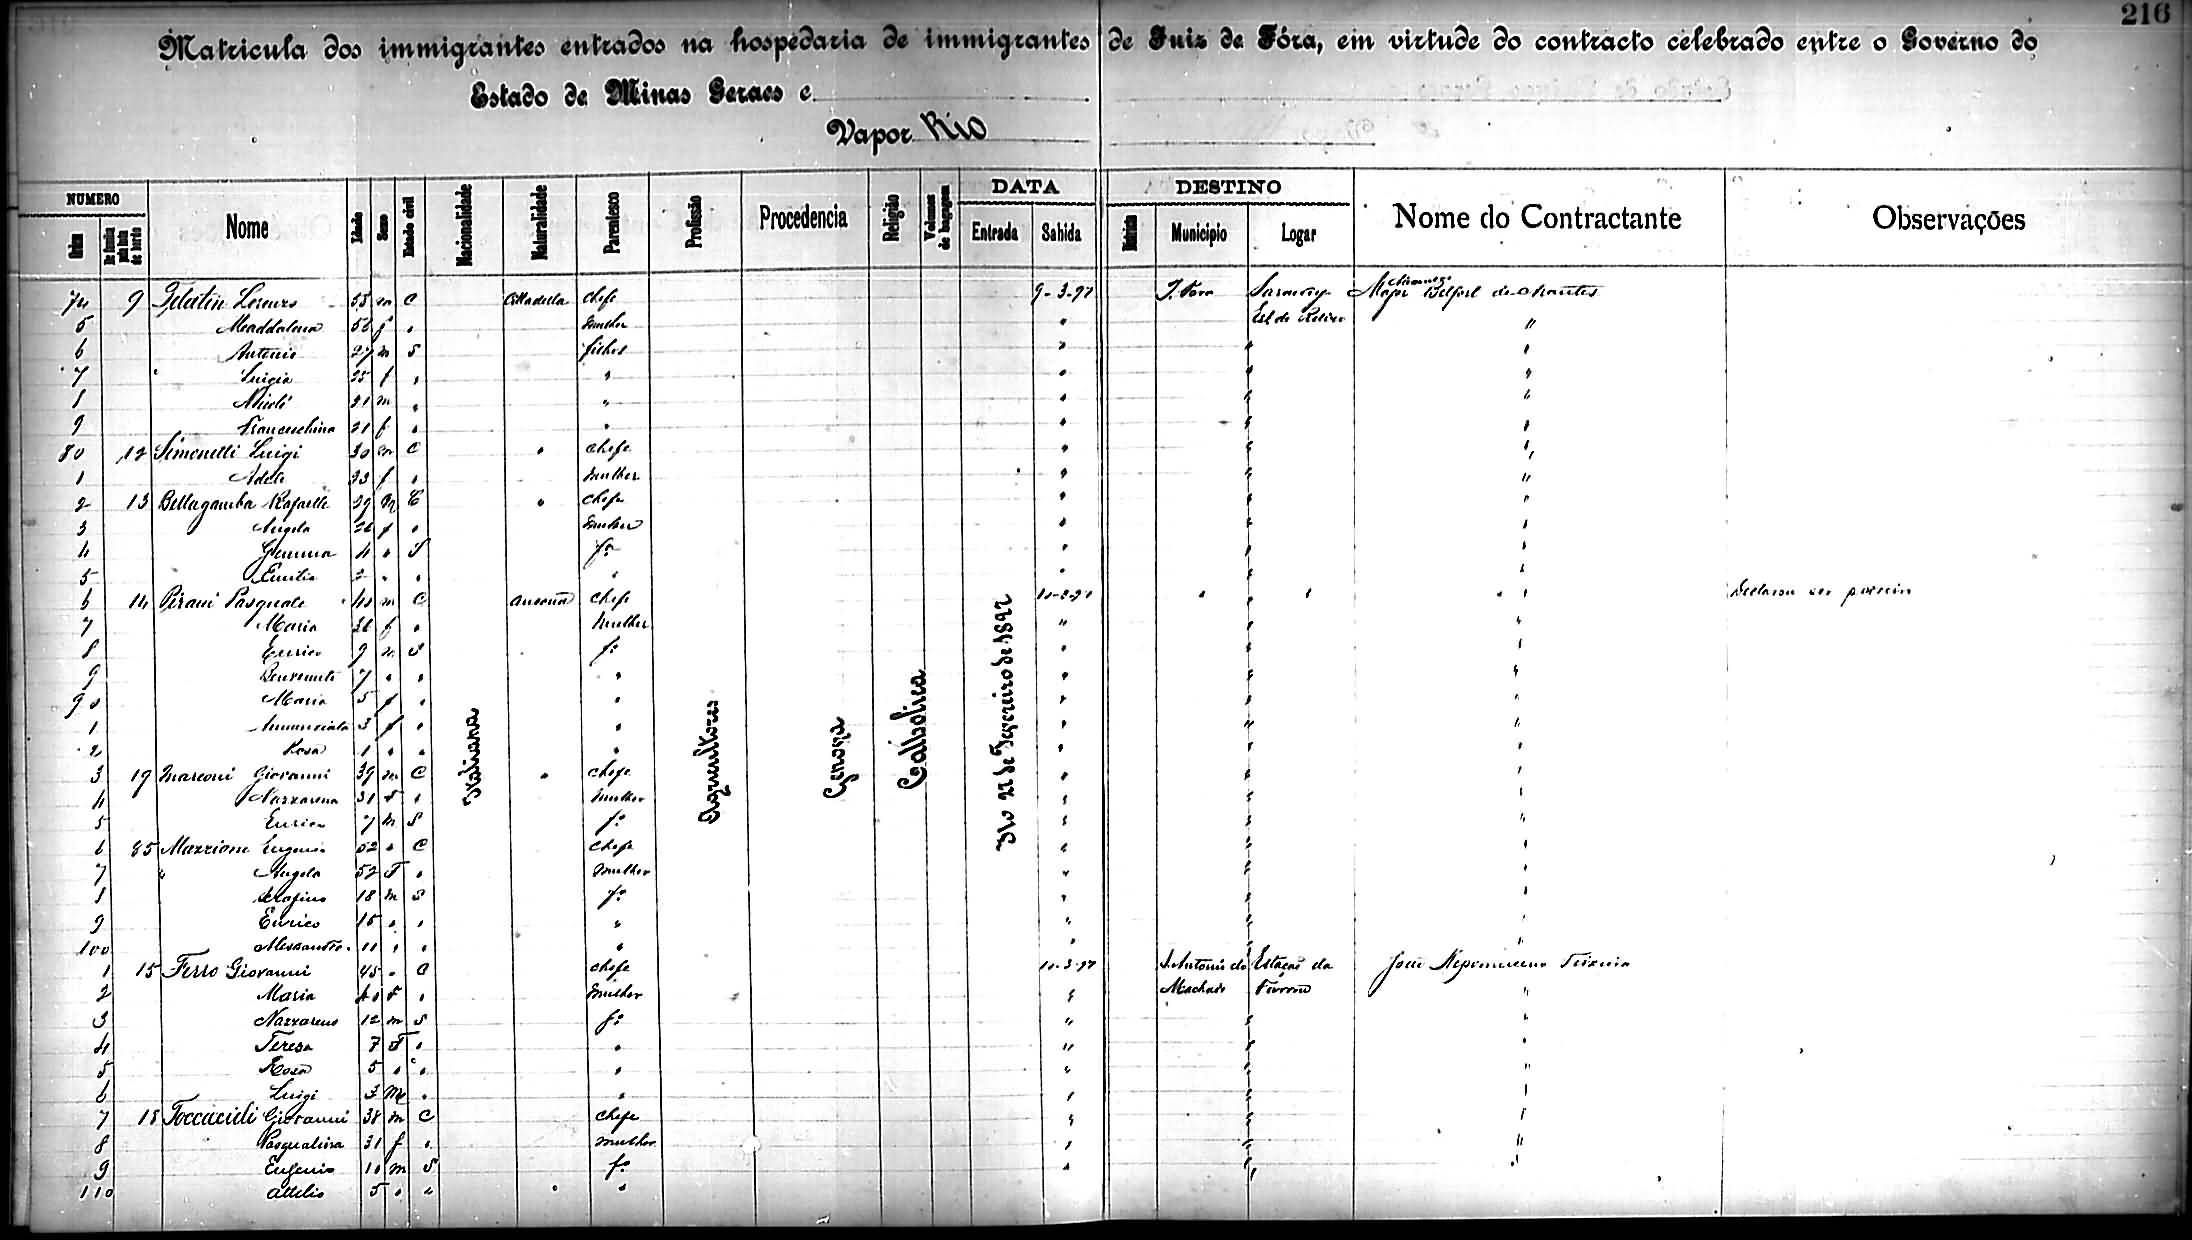 216
Matricula dos immigrantes entrados na hospedaria de immigrantes de Juiz de Fóra, em virtude do contracto celebrado entre o Governo do
Estado de Minas Geraes e
Vapor Rio
NUMERO Nome Idade Sexo Estado civil Nacionalidade Naturalidade Parentesco Profissão Procedencia Religião Volumes de bagagem DATA DESTINO Nome do Contractante Observações
Ordem De familia pela lista de bordo Entrada Sahida Municipio Logar
Italiana Agricultores Genova Catholica Rio 22 de Fevereiro de 1897
74 9 Lorenzo 55 m C Cittadella chefe 9-3-97 J. Fora Major Belfort de Arantes
5 Maddalena 56 f " mulher " Est do Retiro "
6 Antonio 27 m S filhos " " "
7 Luigia 25 f " " " " "
8 21 m " " " " "
9 Franceschina 21 f " " " " "
80 12 Simonetti Luigi 30 m C " chefe " " "
1 Adele 23 f " mulher " " "
2 13 Bellagamba Rafaelle 29 m C " chefe " " "
3 Angela 26 f " mulher " " "
4 Gemma 4 " S fº " " "
5 Emilia 2 " " " " " "
6 14 Pirani Pasquale 40 m C Ancona chefe " " " Declarou ser
7 Maria 36 f " mulher " " "
8 Enrico 9 m S fº " " "
9 Benvenuto 7 " " " " " "
90 Maria 5 f " " " " "
1 Annunciata 3 f " " " " "
2 Rosa 1 " " " " " "
3 19 Marconi Giovanni 39 m C " chefe " " "
4 Nazzarena 31 F " mulher " " "
5 Enrico 7 m S fº " " "
6 85 Mazzione Eugenio 52 " C chefe " " "
7 " Angela 52 F " mulher " " "
8 Serafino 18 m S fº " " "
9 Enrico 15 " " " " " "
100 Alessandro 11 " " " " " "
1 15 Ferro Giovanni 45 " C chefe 10-3-97 S. Antonio do Estação da João Nepomuceno Teixeira
2 Maria 40 F " mulher " Machado "
3 Nazzareno 12 m S fº " " "
4 Teresa 7 F " " " " "
5 Rosa 5 " " " " " "
6 Luigi 3 m " " " " "
7 18 Toccacieli Giovanni 38 m C chefe " " "
8 Pasqualina 31 f " mulher " " "
9 Eugenio 10 m S fº " " "
110 Attilio 5 " " " "